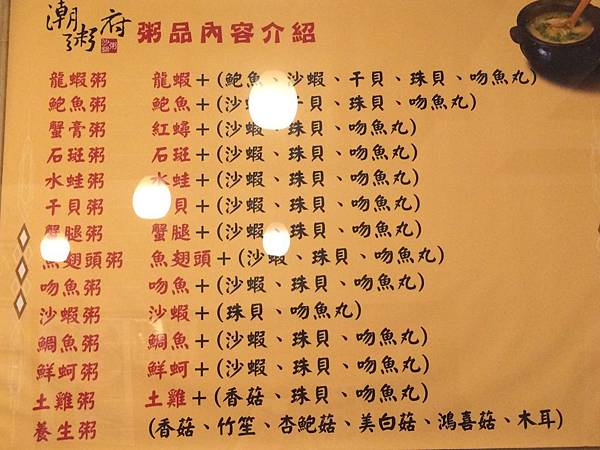 潮粥府 粥品內容介紹
龍蝦粥 龍蝦+(鮑魚、沙蝦、干貝、珠貝、吻魚丸)
鮑魚粥 鮑魚+(沙蝦、干貝、珠貝、吻魚丸)
蟹膏粥 紅蟳+(沙蝦、珠貝、吻魚丸)
石斑粥 石斑+(沙蝦、珠貝、吻魚丸)
水蛙粥 水蛙+(沙蝦、珠貝、吻魚丸)
干貝粥 貝+(沙蝦、珠貝、吻魚丸)
蟹腿粥 蟹腿+(沙蝦、珠貝、吻魚丸)
魚翅頭粥 魚翅頭+(沙蝦、珠貝、吻魚丸)
吻魚粥 吻魚+(沙蝦、珠貝、吻魚丸)
沙蝦粥 沙蝦+(珠貝、吻魚丸)
鯛魚粥 鯛魚+(沙蝦、珠貝、吻魚丸)
鮮蚵粥 鮮蚵+(沙蝦、珠貝、吻魚丸)
土雞粥 土雞+(香菇、珠貝、吻魚丸)
養生粥 (香菇、竹笙、杏鮑菇、美白菇、鴻喜菇、木耳)